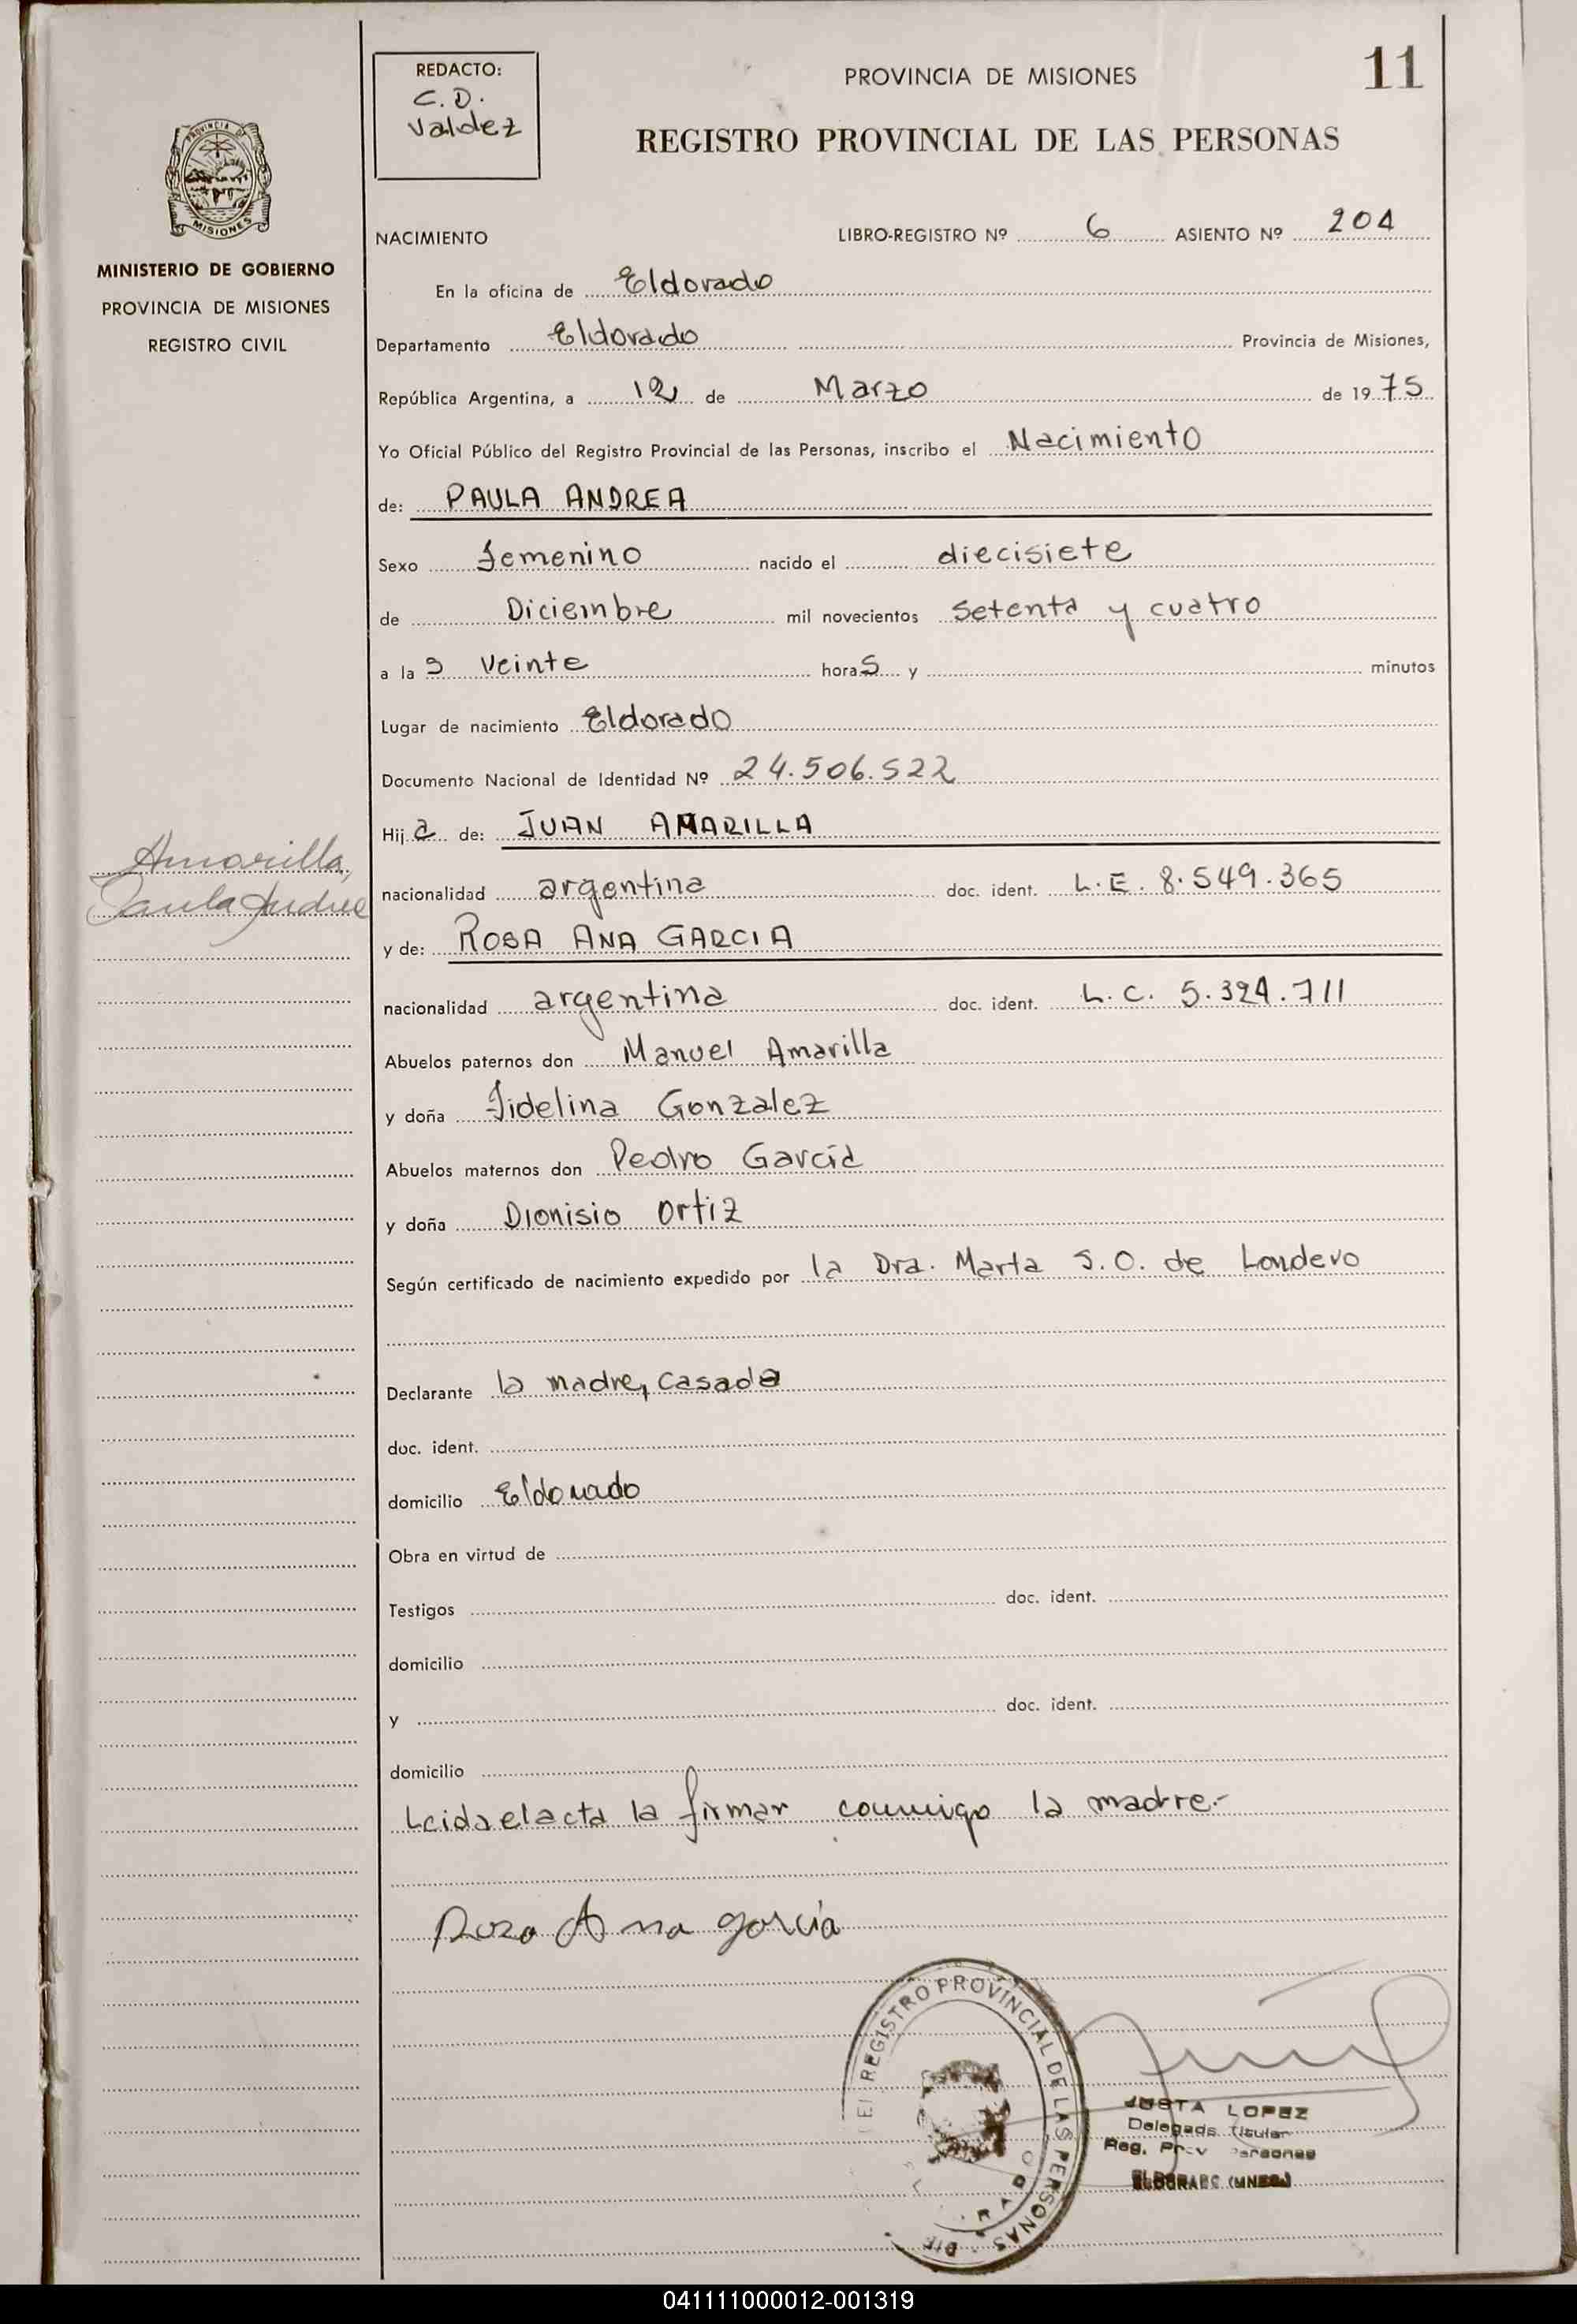 REDACTO:
C. D.
Valdez
PROVINCIA DE MISIONES
11
REGISTRO PROVINCIAL DE LAS PERSONAS
PROVINCIA DE
MISIONES
MINISTERIO DE GOBIERNO
PROVINCIA DE MISIONES
REGISTRO CIVIL
NACIMIENTO LIBRO-REGISTRO Nº 6 ASIENTO Nº 204
En la oficina de Eldorado
Departamento Eldorado Provincia de Misiones,
República Argentina, a 12 de Marzo de 1975
Yo Oficial Público del Registro Provincial de las Personas, inscribo el Nacimiento
de: PAULA ANDREA
Sexo femenino nacido el diecisiete
de Diciembre mil novecientos setenta y cuatro
a las veinte horas y minutos
Lugar de nacimiento Eldorado
Documento Nacional de Identidad Nº 24.506.522
Hija de: JUAN AMARILLA
Amarilla,
Paula Andrea
nacionalidad argentina doc. ident. L.E. 8.549.365
y de: ROSA ANA GARCIA
nacionalidad argentina doc. ident. L.C. 5.324.711
Abuelos paternos don Manuel Amarilla
y doña Fidelina Gonzalez
Abuelos maternos don Pedro García
y doña Dionisio Ortiz
Según certificado de nacimiento expedido por la Dra. Marta S.O. de Londero
Declarante la madre, casada
doc. ident.
domicilio Eldorado
Obra en virtud de
Testigos doc. ident.
domicilio
y doc. ident.
domicilio
Leida el acta la firmar conmigo la madre.-
Roza Ana garcia
REGISTRO PROVINCIAL DE LAS PERSONAS
JUSTA LOPEZ
Delegada Titular
Reg. Prov Personas
ELDORADO (MNES.)
041111000012-001319